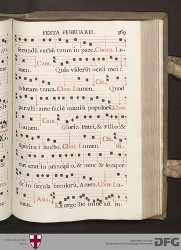 FESTA FEBRUARII. 169
secundū verbū tuum in pace. Chorꝰ. Lu-
men. Cant. Quia viderūt oculi mei:
salutare tuum. Chor. Lumen. Quod
parasti: ante faciē omniū populorū. Chor.
Lumen. Cant. Gloria Patri, & Filio: &
Spiritui sancto. Chor. Lumen. Si-
cut erat in principio, & nunc & semper:
& in sæcula sæculorū, Amen. Chor. Lu-
men. Añа. Exurge Domine ad
DFG